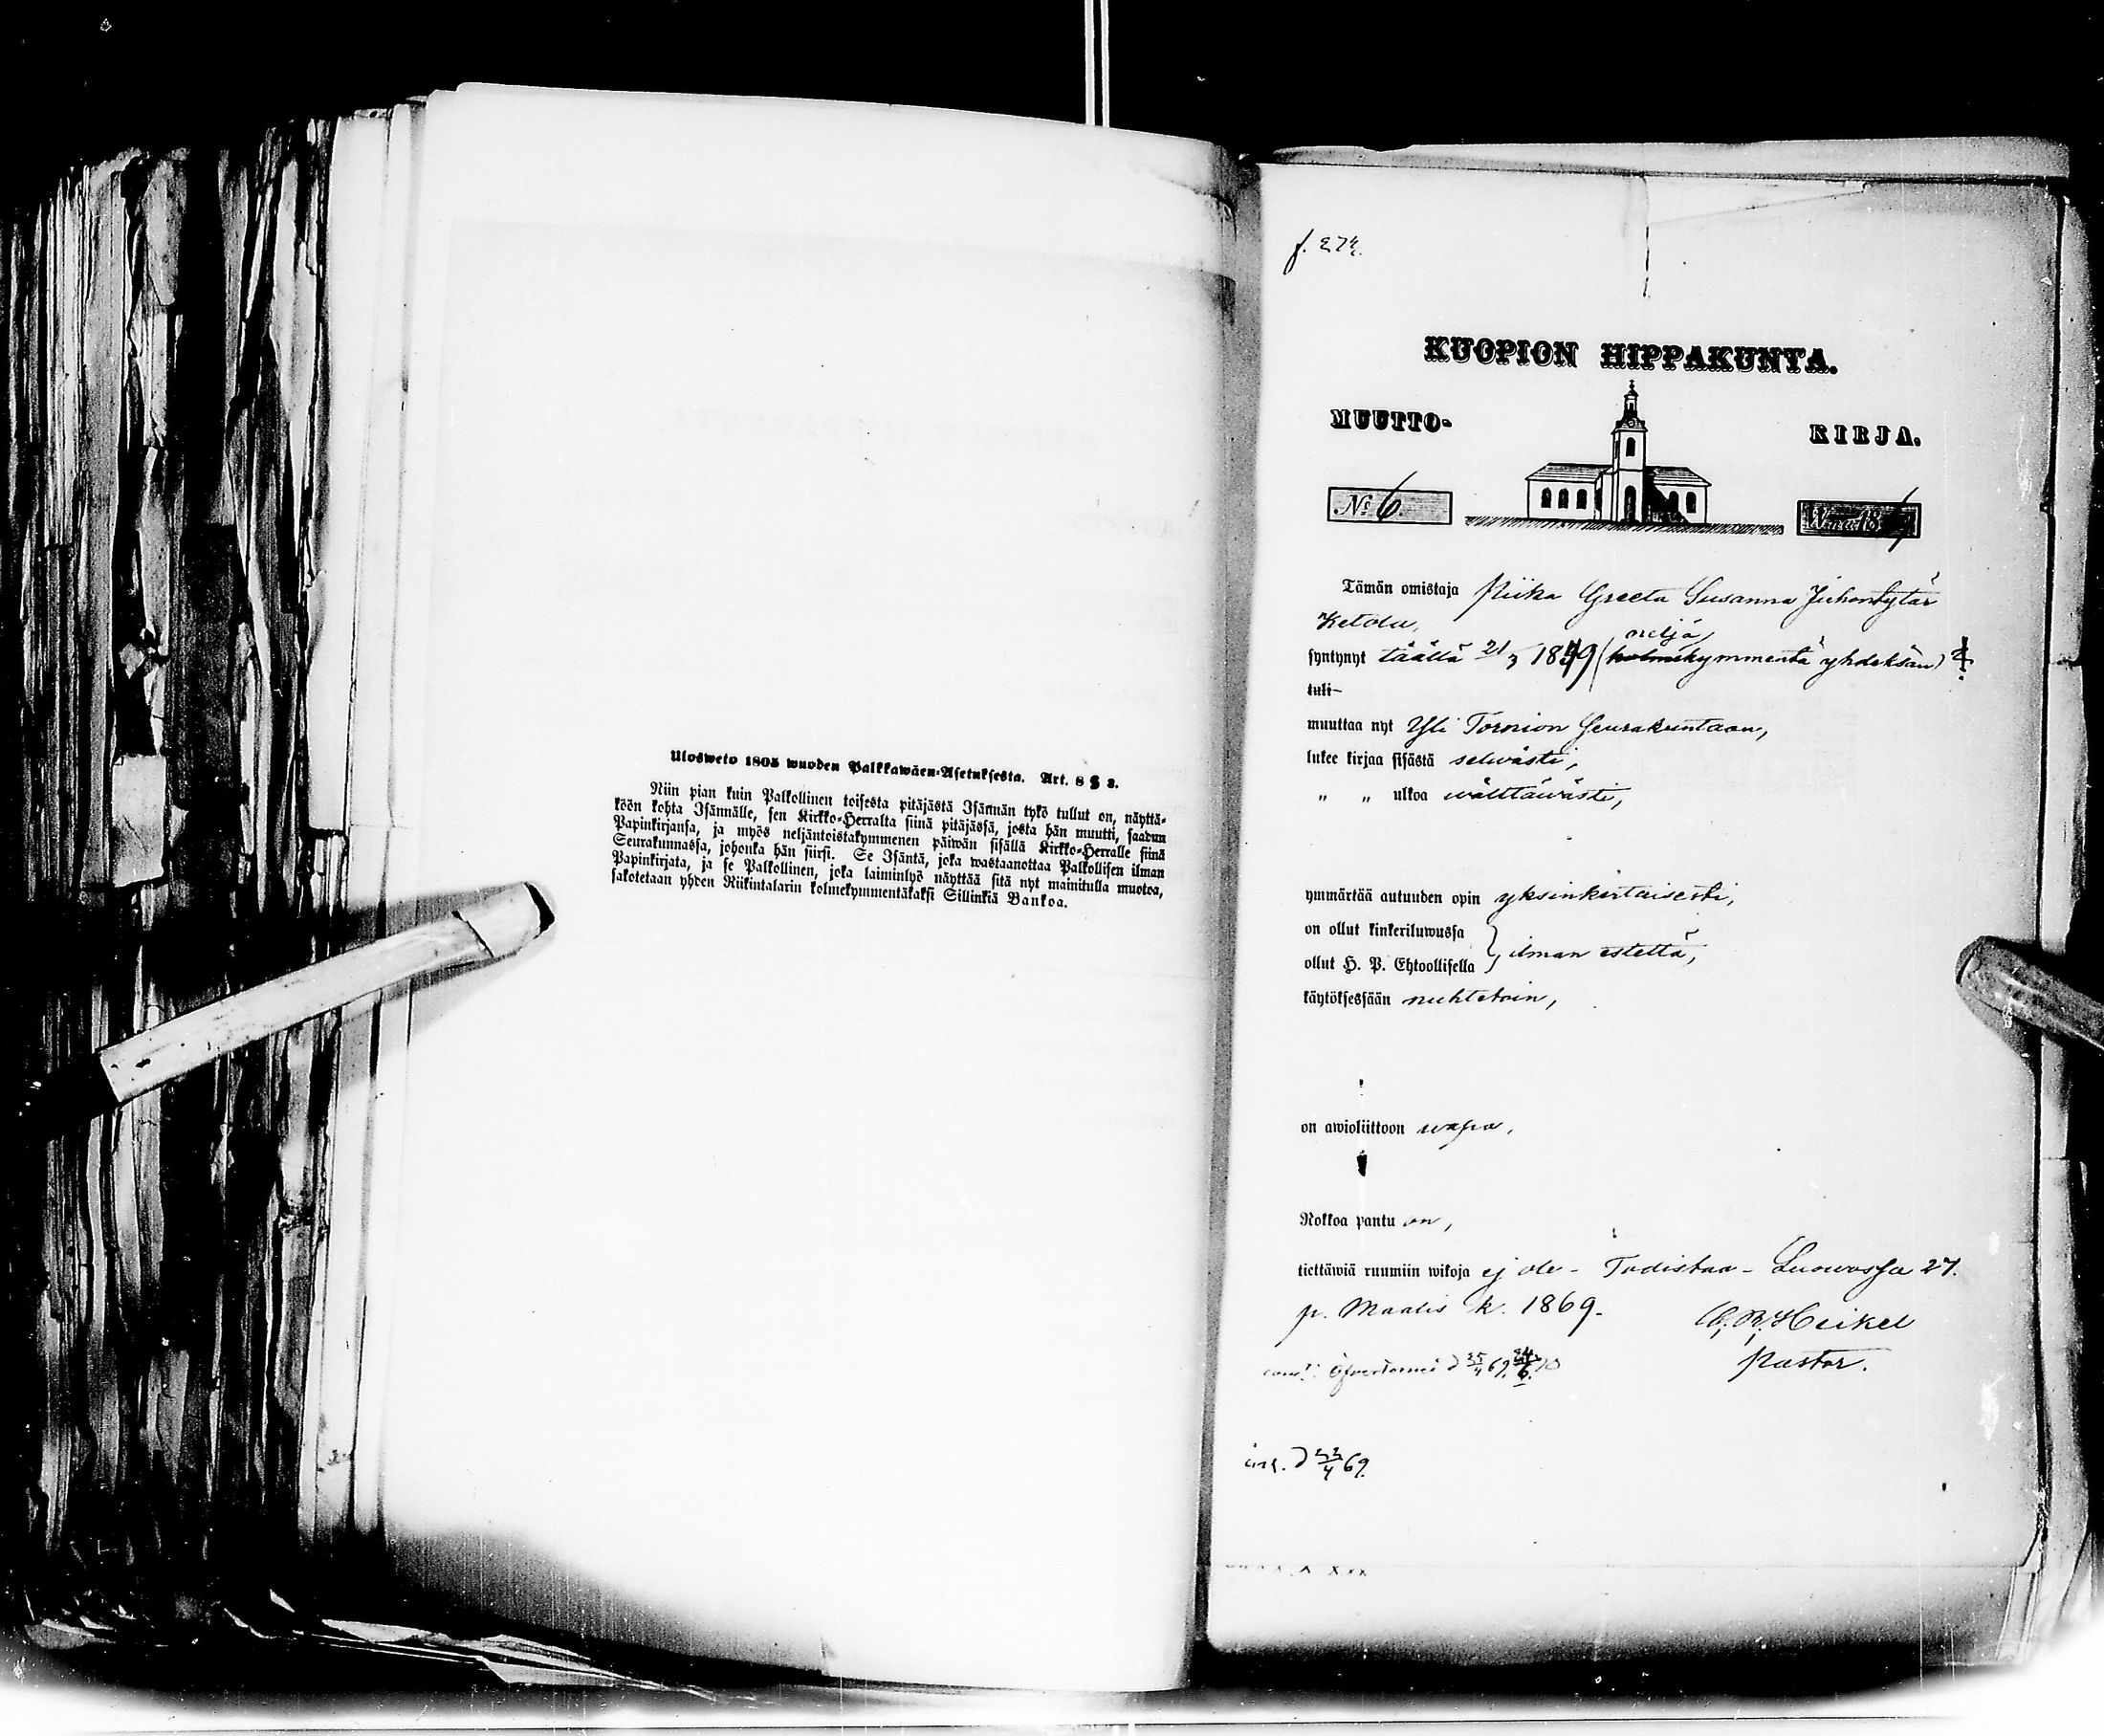 Ulosweto 1805 wuoden Palkkawäen-Asetuksesta. Art. 8 § 2.
Niin pian kuin Palkollinen toisesta pitäjästä Isännän tykö tullut on, näyttä-
köön kohta Isännälle, sen Kirkko-Herralta siinä pitäjässä, josta hän muutti, saadun
Papinkirjansa, ja myös neljäntoistakymmenen päiwän sisällä Kirkko-Herralle siinä
Seurakunnassa, johonka hän siirsi. Se Isäntä, joka wastaanottaa Palkollisen ilman
Papinkirjata, ja se Palkollinen, joka laiminlyö näyttää sitä nyt mainitulla muotoa,
sakotetaan yhden Riikintalarin kolmekymmentäkaksi Sillinkiä Bankoa.
f. 274.
KUOPION HIPPAKUNTA.
MUUTTO- KIRJA.
No 6. Wuna 18
Tämän omistaja Riika Greeta Susanna Juhontytär
Ketola,
neljä
syntynyt täällä 21/3 1849 (kolmekymmentä yhdeksän)
tuli-
muuttaa nyt Yli Tornion Seurakuntaan,
lukee kirjaa sisästä selwästi,
" " ulkoa wälttäwästi,
ymmärtää autuuden opin yksinkertaisesti,
on ollut kinkeriluwussa
ilman estettä,
ollut H. P. Ehtoollisella
käytöksessään nuhtetoin,
on awioliittoon wapa,
Rokkoa pantu on,
tiettäwiä ruumiin wikoja ej ole - Todistaa - Luowossa 27.
p. Maalis k. 1869.
Heikel
Pastor.
Öfvertorneå d 25/4 69.
d 23/4 69.